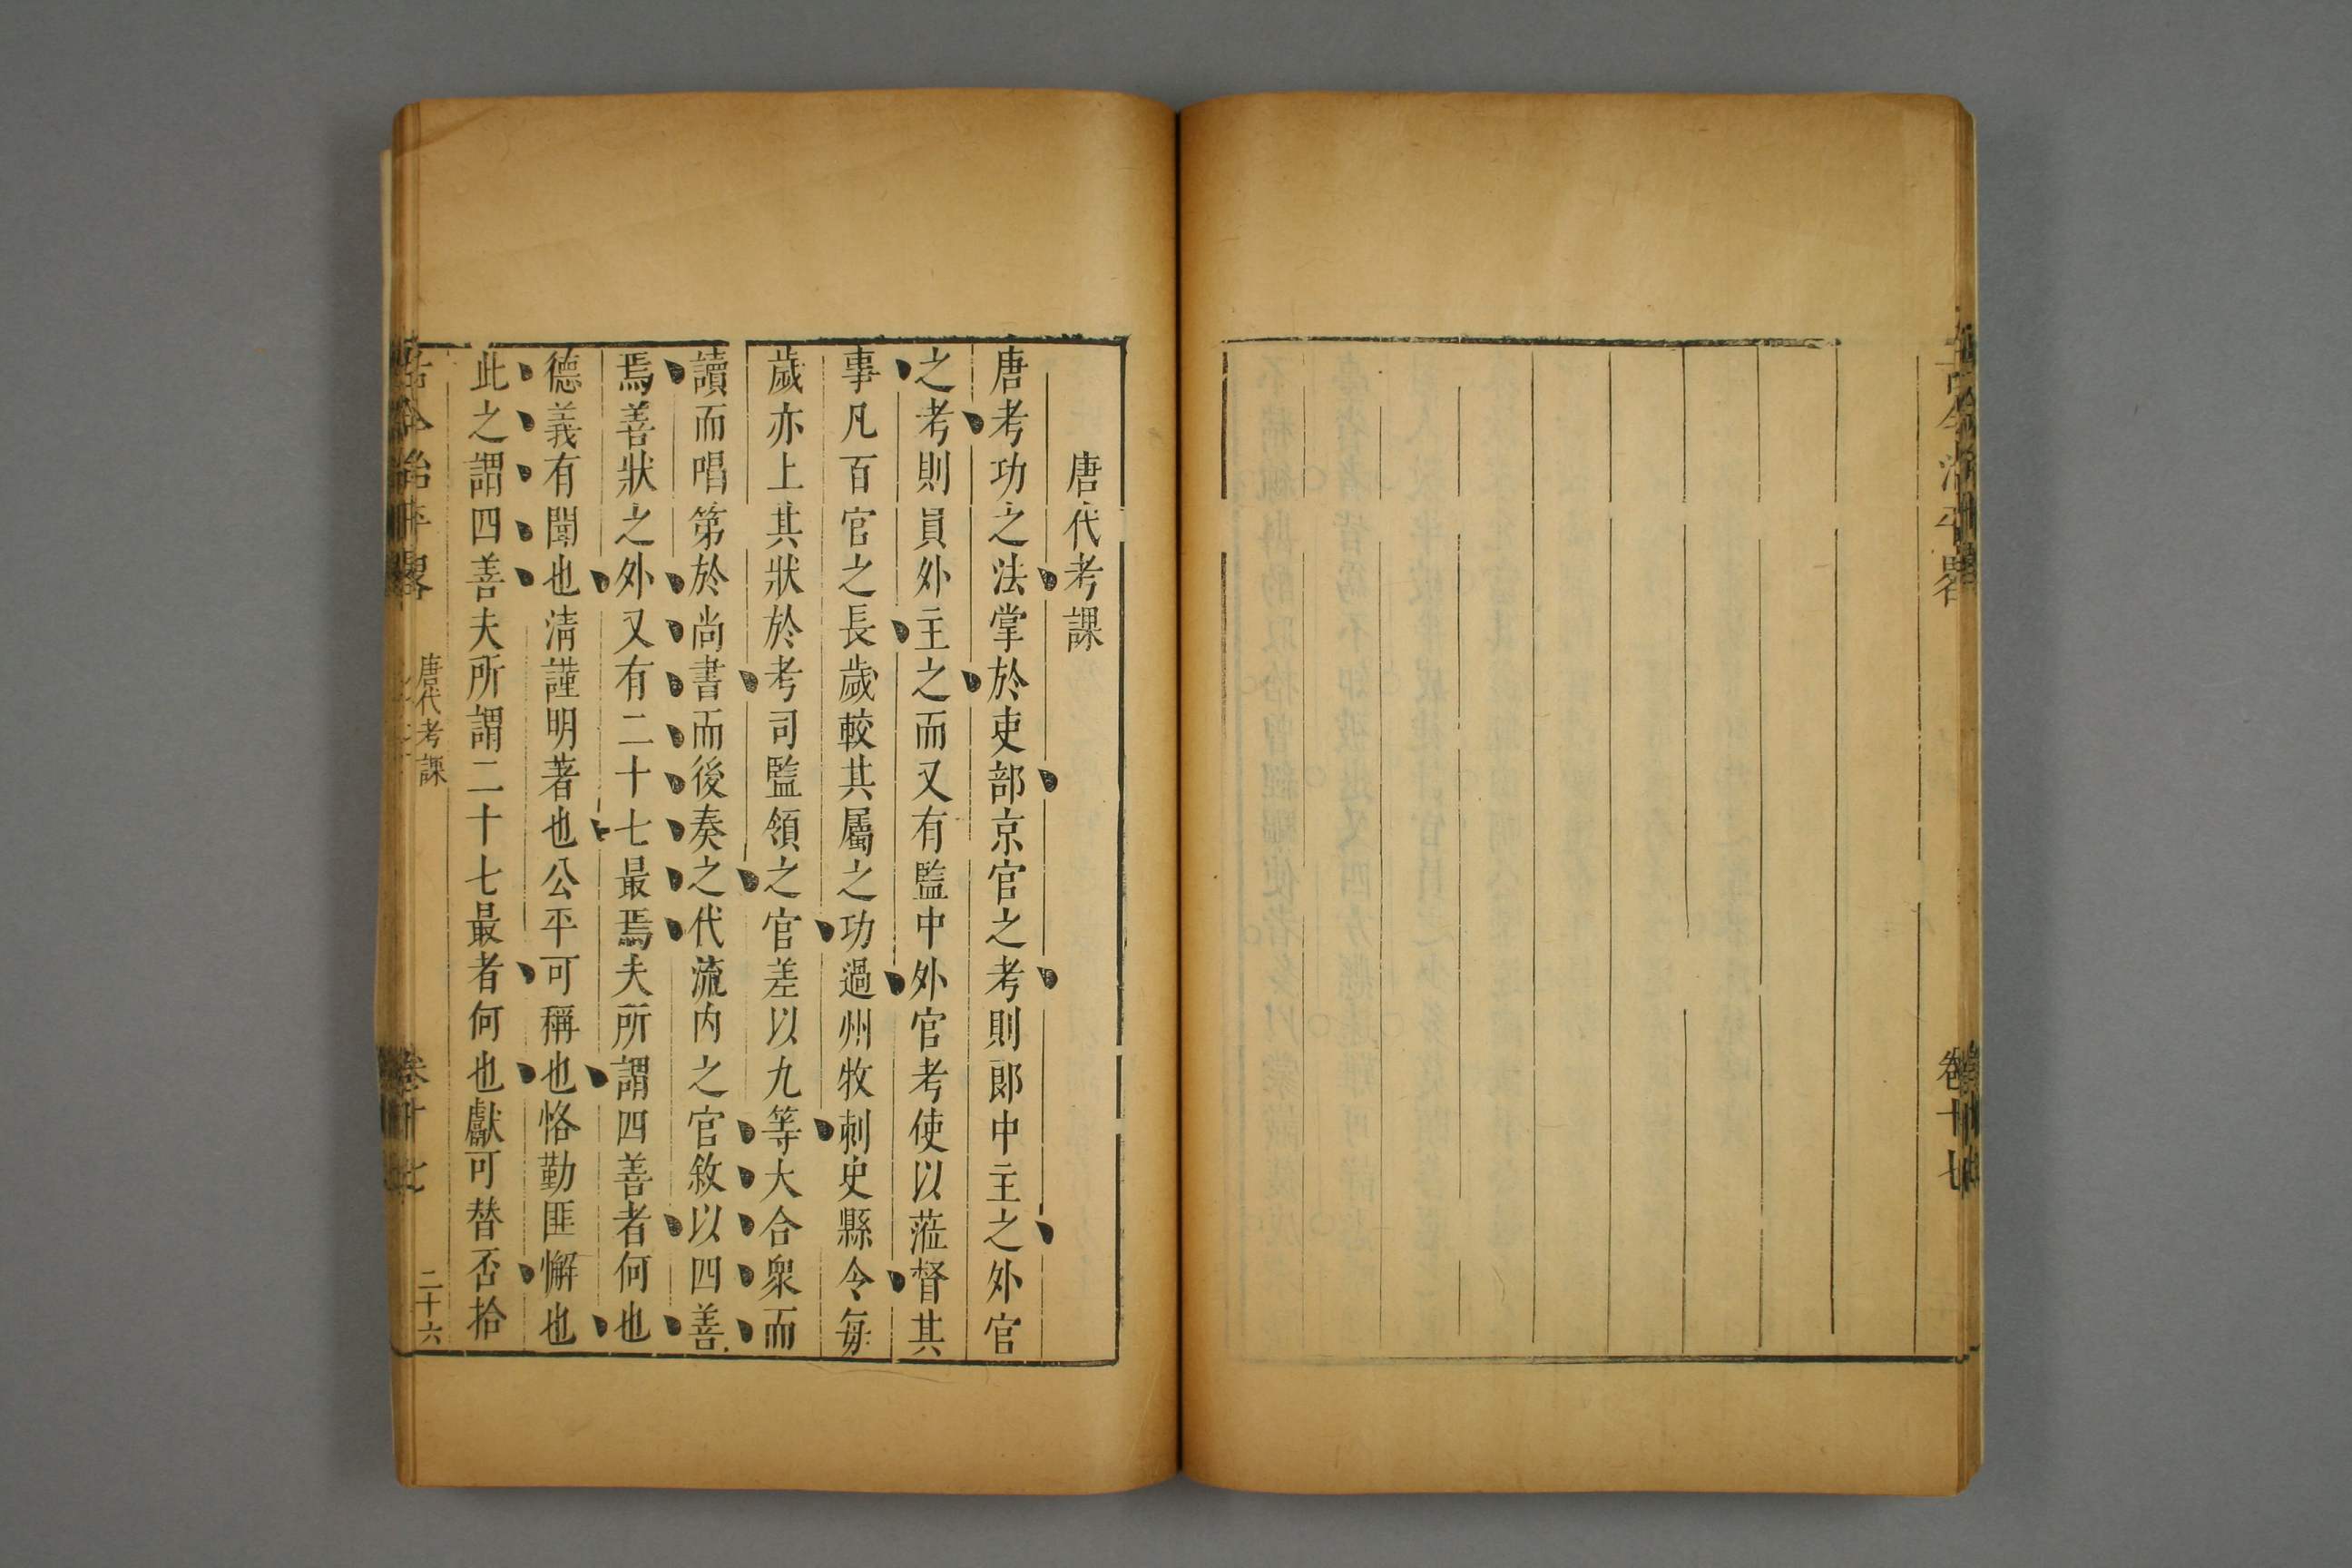 古今治平畧
卷十七
唐代考課
唐考功之法掌於吏部京官之考則郎中主之外官
之考則員外主之而又有監中外官考使以蒞督其
事凡百官之長歲較其屬之功過州牧刺史縣令每
歲亦上其狀於考司監領之官差以九等大合衆而
讀而唱第於尚書而後奏之代流内之官敘以四善
焉善狀之外又有二十七最焉夫所謂四善者何也
德義有聞也淸謹明著也公平可稱也恪勤匪懈也
此之謂四善夫所謂二十七最者何也獻可替否拾
古今治平畧
唐代考課
卷十七
二十六